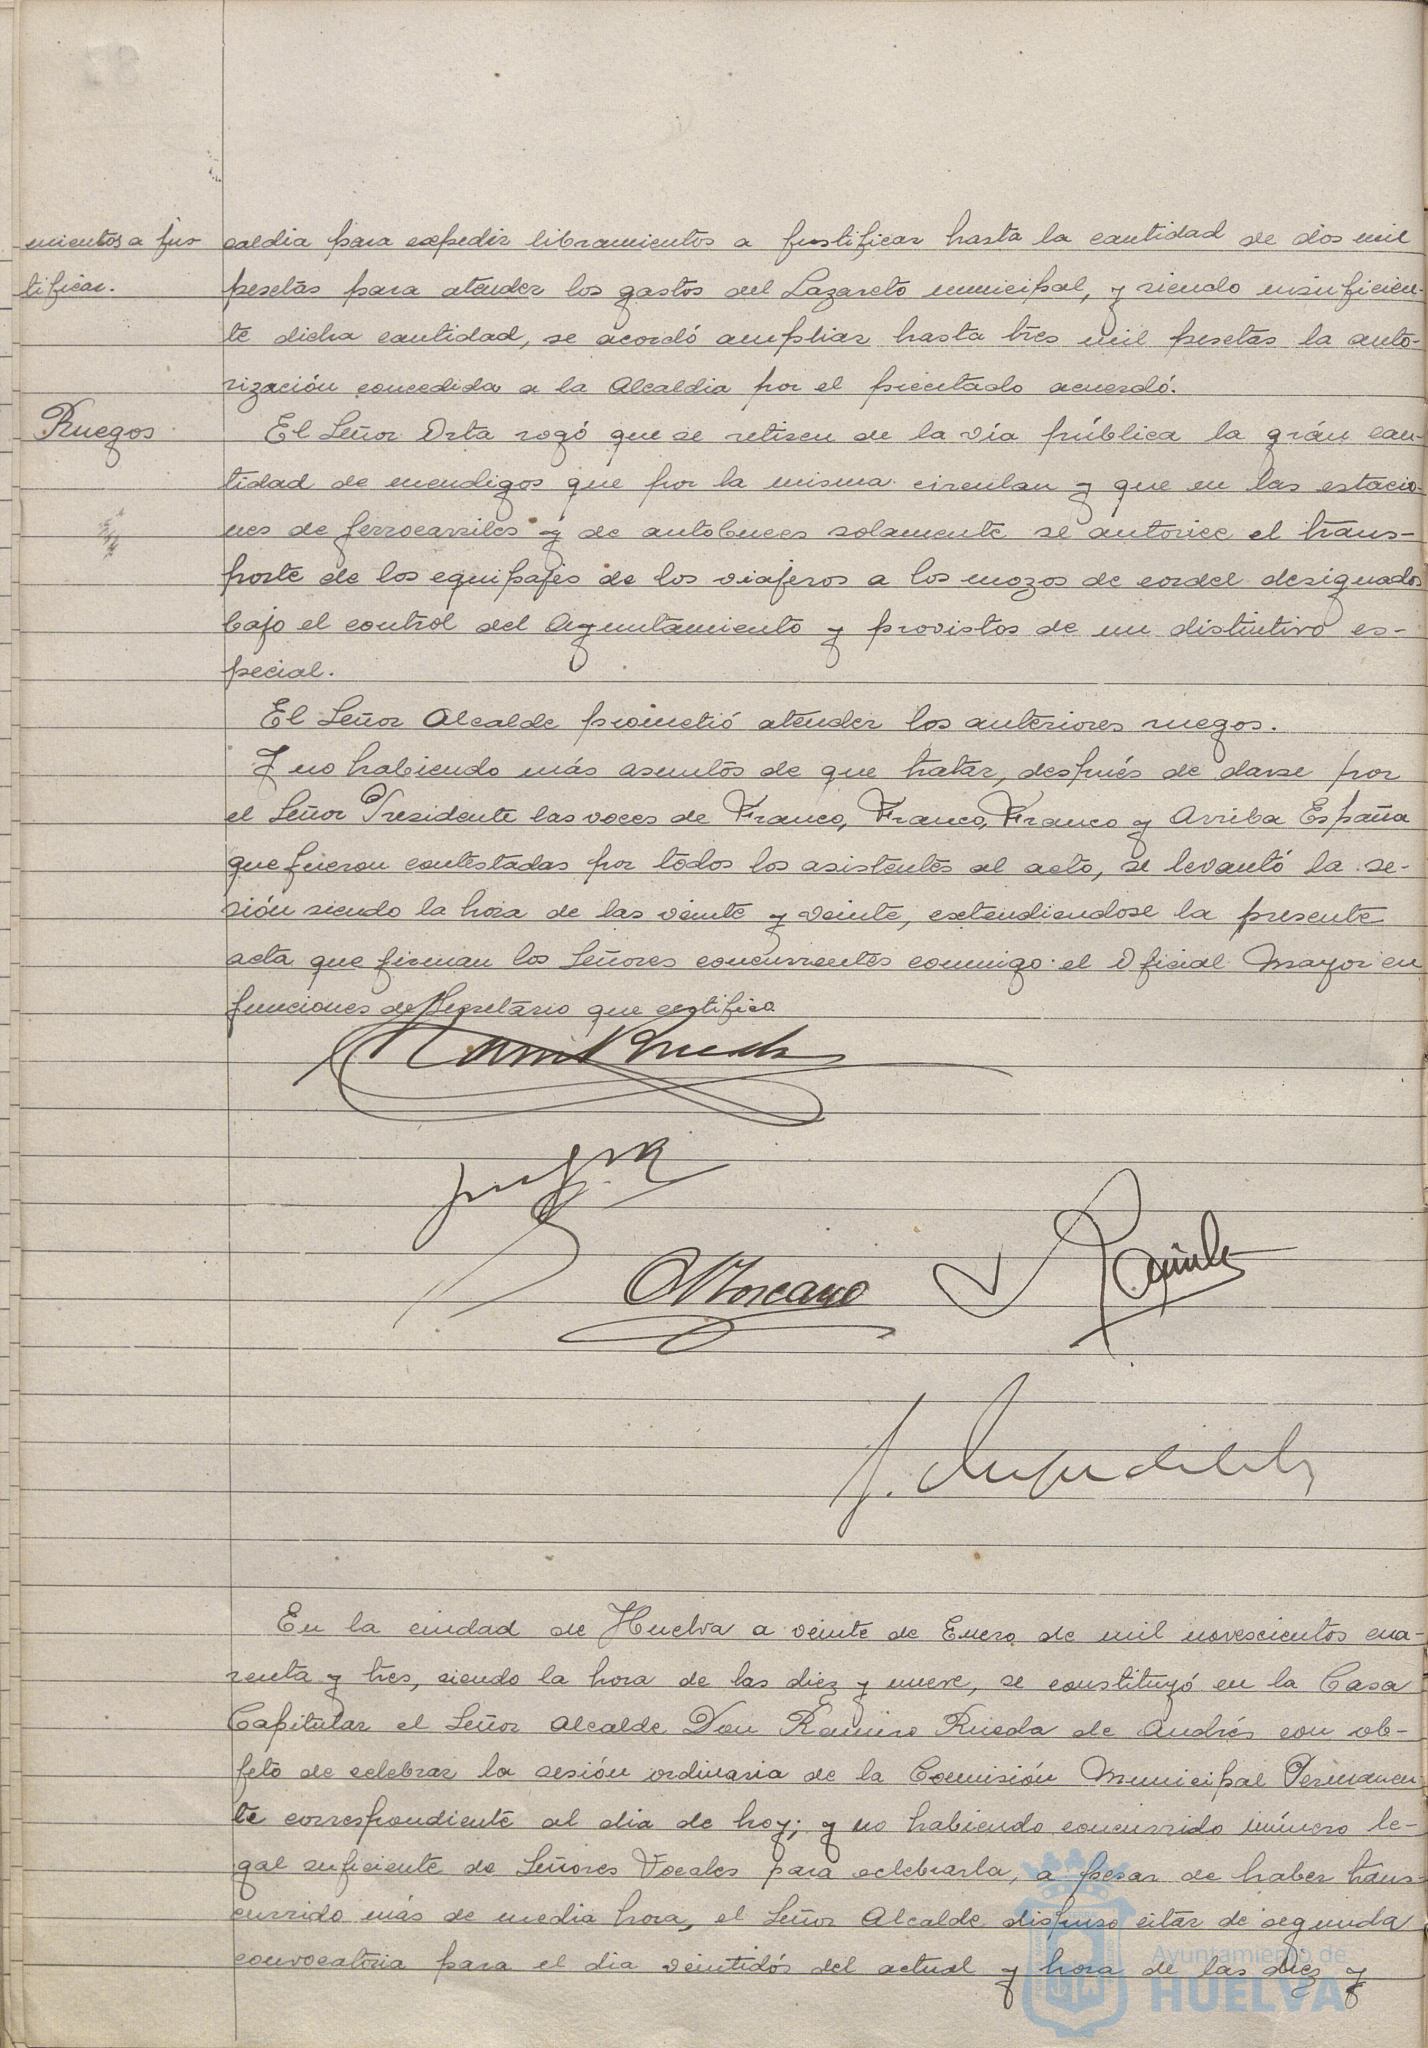 mientos a jus-
tificar.
caldia para expedir libramientos a justificar hasta la cantidad de dos mil
pesetas para atender los gastos del Lazareto municipal, y siendo insuficien-
te dicha cantidad, se acordó ampliar hasta tres mil pesetas la auto-
rización concedida a la Alcaldia por el precitado acuerdó.
Ruegos
El Señor Orta rogó que se retiren de la vía pública la grán can-
tidad de mendigos que por la misma circulan y que en las estacio-
nes de ferrocarriles y de autobuces solamente se autorice el trans-
porte de los equipajes de los viajeros a los mozos de cordel designados
bajo el control del Ayuntamiento y provistos de un distintivo es-
pecial.
El Señor Alcalde prometió atender los anteriores ruegos.
Y no habiendo más asuntos de que tratar, después de darse por
el Señor Presidente las voces de Franco, Franco, Franco y Arriba España
que fueron contestadas por todos los asistentes al acto, se levantó la se-
sión siendo la hora de las veinte y veinte, extendiendose la presente
acta que firman los Señores concurrentes conmigo el Oficial Mayor en
funciones de Secretario que certifico
Moscano
En la ciudad de Huelva a veinte de Enero de mil novescientos cua-
renta y tres, siendo la hora de las diez y nueve, se constituyó en la Casa
Capitular el Señor Alcalde Don Ramiro Rueda de Andrés con ob-
jeto de celebrar la sesión ordinaria de la Comisión Municipal Permanen
te correspondiente al dia de hoy; y no habiendo concurrido número le-
gal suficiente de Señores Vocales para celebrarla, a pesar de haber trans-
currido más de media hora, el Señor Alcalde dispuso citar de segunda
convocatoria para el dia veintidós del actual y hora de las diez y
Ayuntamiento de
HUELVA